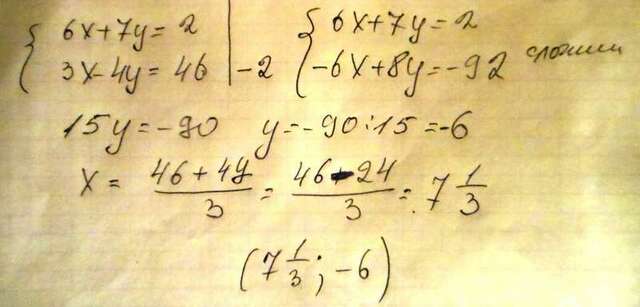 { 6x+7y=2 | { 6x+7y=2
3x-4y=46 | -2 -6x+8y=-92 сложим
15y=-90 y=-90:15=-6
x = (46+4y)/3 = (46-24)/3 = 7 1/3
(7 1/3; -6)